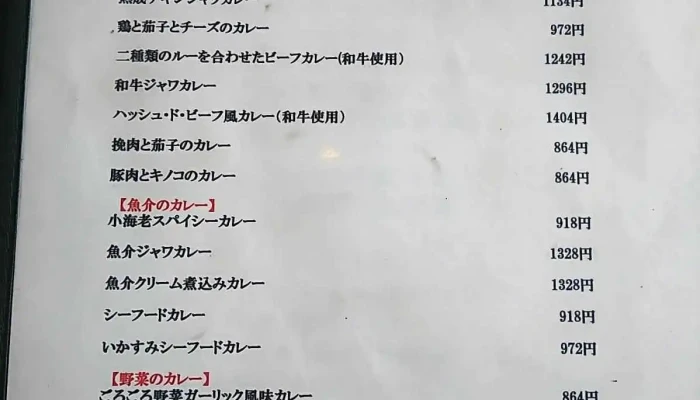 チキンジャワカレー 1134円
鶏と茄子とチーズのカレー 972円
二種類のルーを合わせたビーフカレー(和牛使用) 1242円
和牛ジャワカレー 1296円
ハッシュ・ド・ビーフ風カレー(和牛使用) 1404円
挽肉と茄子のカレー 864円
豚肉とキノコのカレー 864円
【魚介のカレー】
小海老スパイシーカレー 918円
魚介ジャワカレー 1328円
魚介クリーム煮込みカレー 1328円
シーフードカレー 918円
いかすみシーフードカレー 972円
【野菜のカレー】
ごろごろ野菜ガーリック風味カレー 864円